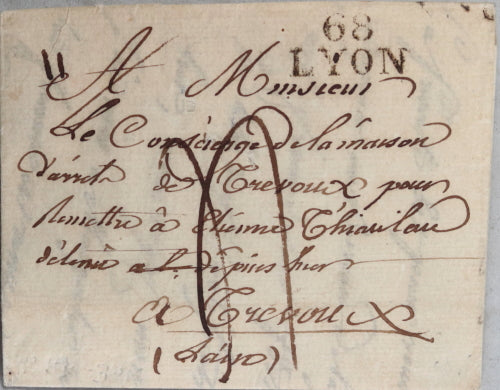 68
LYON
A Monsieur
Le Concierge de la maison
d'arret de Trevoux pour
Remettre à Etienne
détenu depuis hier
A Trevoux
(Lain)